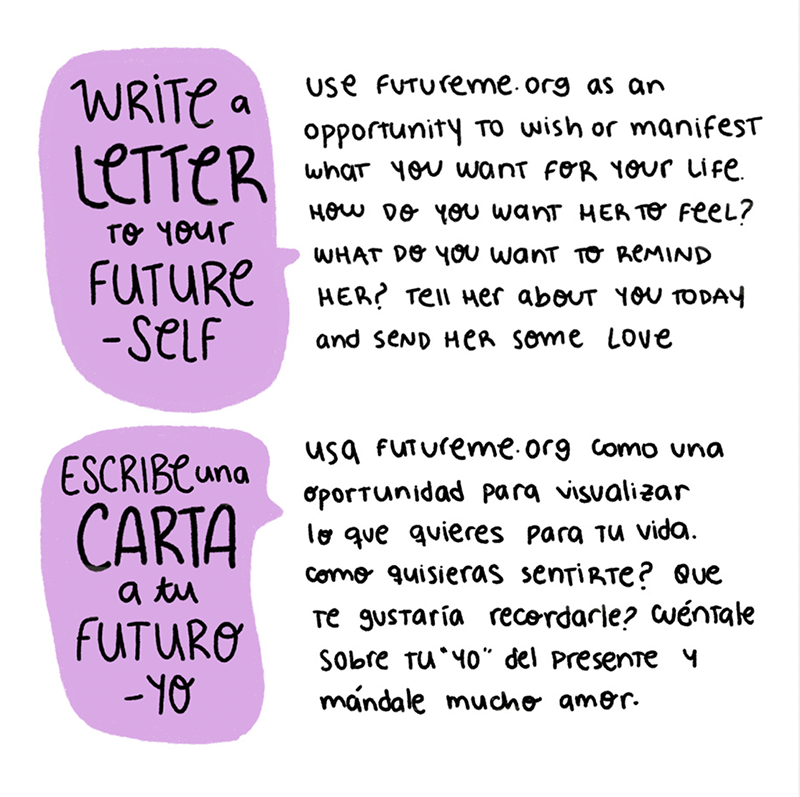 WRITE a
LETTER
TO YOUR
FUTURE
-SELF
USE FUTUREME.ORG as an
OPPORTUNITY TO WISH OR MANIFEST
WHAT YOU WANT FOR YOUR LIFE.
HOW DO YOU WANT HER TO FEEL?
WHAT DO YOU WANT TO REMIND
HER? TELL HER about YOU TODAY
and SEND HER SOME LOVE
ESCRIBE una
CARTA
a tu
FUTURO
-YO
usa FUTUREME.ORG como una
oportunidad para visualizar
lo que quieres para TU vida.
como quisieras SENTIRTE? QUE
TE gustaría recordarle? cuéntale
sobre TU "YO" del PRESENTE y
mándale mucho amor.